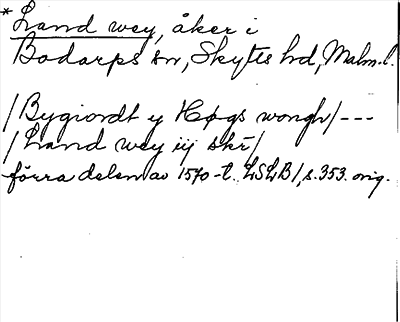 *Land wey, åker i
Bodarps sn, Skytts hd, Malm. l.
/Bygiordt y Høgs wongh/---
/Land wey iij skr/
förra delen av 1570-t. LSLB/, s. 353. orig.